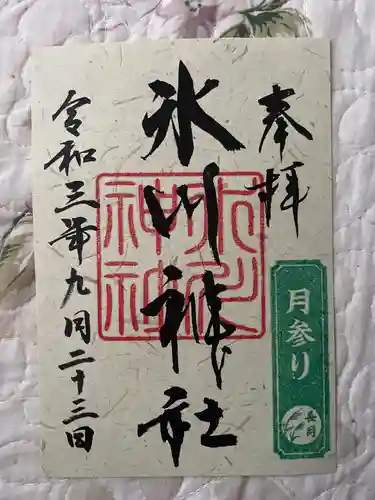 奉拝
月参り
長月
氷川神社
氷川神社
令和三年九月二十三日